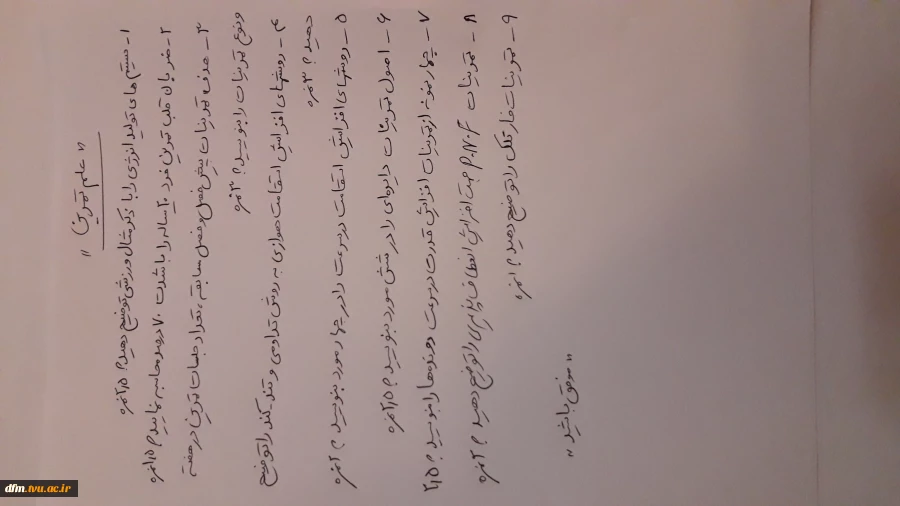 « علم تمرین »
۱ - سیستم های تولید انرژی را با ذکر مثال ورزشی توضیح دهید؟ ۲٫۵ نمره
۲ - ضربان قلب تمرین فرد ۲۰ ساله را با شدت ۷۰ درصد محاسبه نمایید؟ ۱٫۵ نمره
۳ - هدف تمرینات پیش فصل و فصل مسابقه، تعداد جلسات تمرین در هفته
و نوع تمرینات را بنویسید؟ ۳ نمره
۴ - روشهای افزایش استقامت هوازی به روش تداومی و تند کند را توضیح
دهید؟ ۳ نمره
۵ - روشهای افزایش استقامت در سرعت را در چهار مورد بنویسید؟ ۲ نمره
۶ - اصول تمرینات دایره‌ای را در شش مورد بنویسید؟ ۲٫۵ نمره
۷ - چهار نمونه از تمرینات افزایش قدرت در سرعت دونده‌ها را بنویسید؟ ۲٫۵
۸ - تمرینات P.N.F جهت افزایش انعطاف پذیری را توضیح دهید؟ ۲ نمره
۹ - تمرینات فارتلک را توضیح دهید؟ ۱ نمره
« موفق باشید »
dfm.tvu.ac.ir